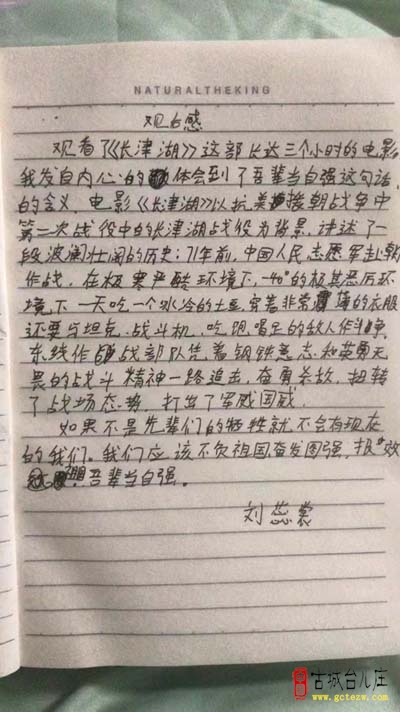 NATURALTHEKING
观后感
观看了《长津湖》这部长达三个小时的电影
我发自内心的体会到了吾辈当自强这句话
的含义，电影《长津湖》以抗美援朝战争中
第二次战役中的长津湖战役为背景，讲述了一
段波澜壮阔的历史：71年前，中国人民志愿军赴朝
作战，在极寒严酷环境下，-40°的极其恶厉环
境下一天吃一个冰冷的土豆，穿着非常薄的衣服
还要与坦克、战斗机、吃跑喝足的敌人作斗争
东线作战部队凭着钢铁意志和英勇无
畏的战斗精神一路追击，奋勇杀敌，扭转
了战场态势，打出了军威国威.
如果不是先辈们的牺牲就不会有现在
的我们。我们应该不负祖国奋发图强，报效
吾辈当自强。
刘蕊裳
古城台儿庄
www.gctezw.com